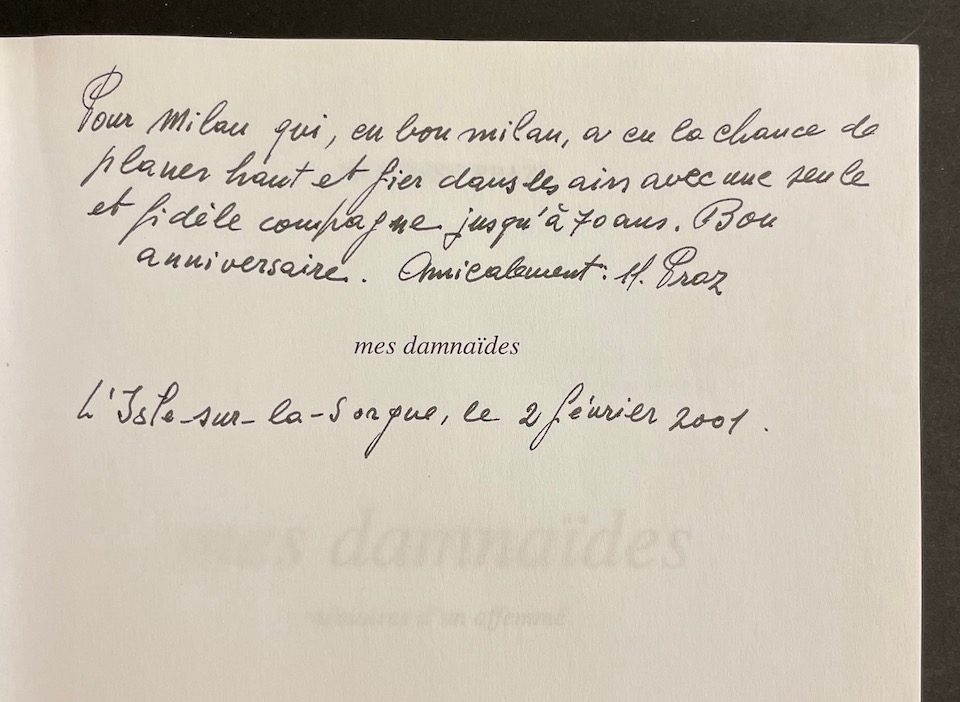 Pour Milan qui, en bon milan, a eu la chance de
planer haut et fier dans les airs avec une seule
et fidèle compagne jusqu'à 70 ans. Bon
anniversaire. Amicalement: H. Praz
mes damnaïdes
L'Isle-sur-la-Sorgue, le 2 février 2001.
mes damnaïdes
mémoires d'un affemmé